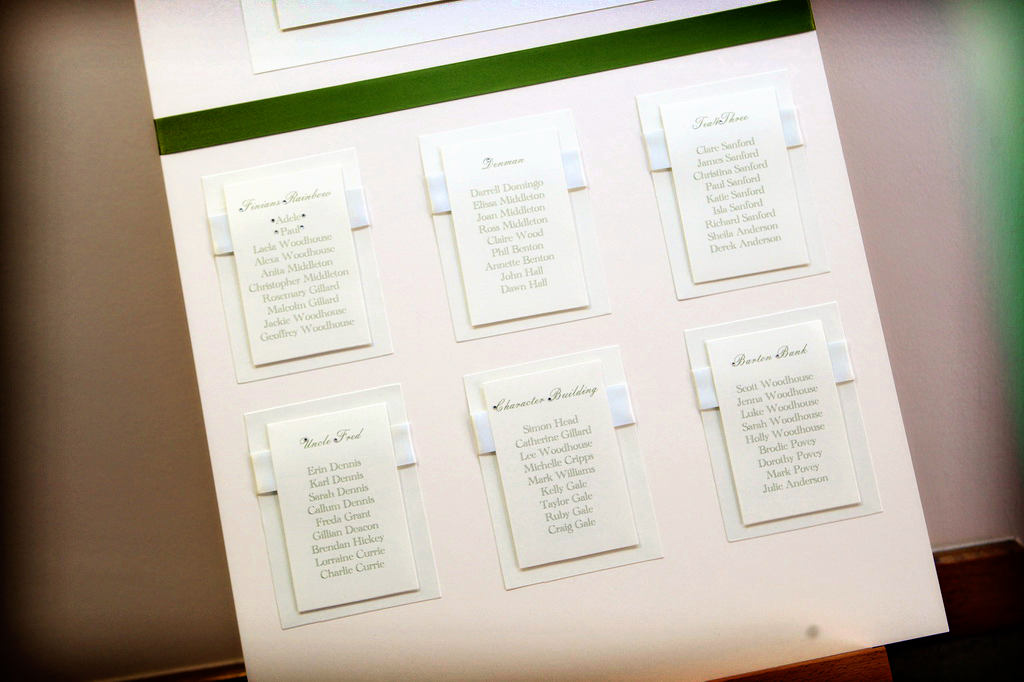 Finians Rainbow
Adele
Paul
Laela Woodhouse
Alexa Woodhouse
Anita Middleton
Christopher Middleton
Rosemary Gillard
Malcolm Gillard
Jackie Woodhouse
Geoffrey Woodhouse
Denman
Darrell Domingo
Elissa Middleton
Joan Middleton
Ross Middleton
Claire Wood
Phil Benton
Annette Benton
John Hall
Dawn Hall
Tea4Three
Clare Sanford
James Sanford
Christina Sanford
Paul Sanford
Katie Sanford
Isla Sanford
Richard Sanford
Sheila Anderson
Derek Anderson
Uncle Fred
Erin Dennis
Karl Dennis
Sarah Dennis
Callum Dennis
Freda Grant
Gillian Deacon
Brendan Hickey
Lorraine Currie
Charlie Currie
Character Building
Simon Head
Catherine Gillard
Lee Woodhouse
Michelle Cripps
Mark Williams
Kelly Gale
Taylor Gale
Ruby Gale
Craig Gale
Barton Bank
Scott Woodhouse
Jenna Woodhouse
Luke Woodhouse
Sarah Woodhouse
Holly Woodhouse
Brodie Povey
Dorothy Povey
Mark Povey
Julie Anderson